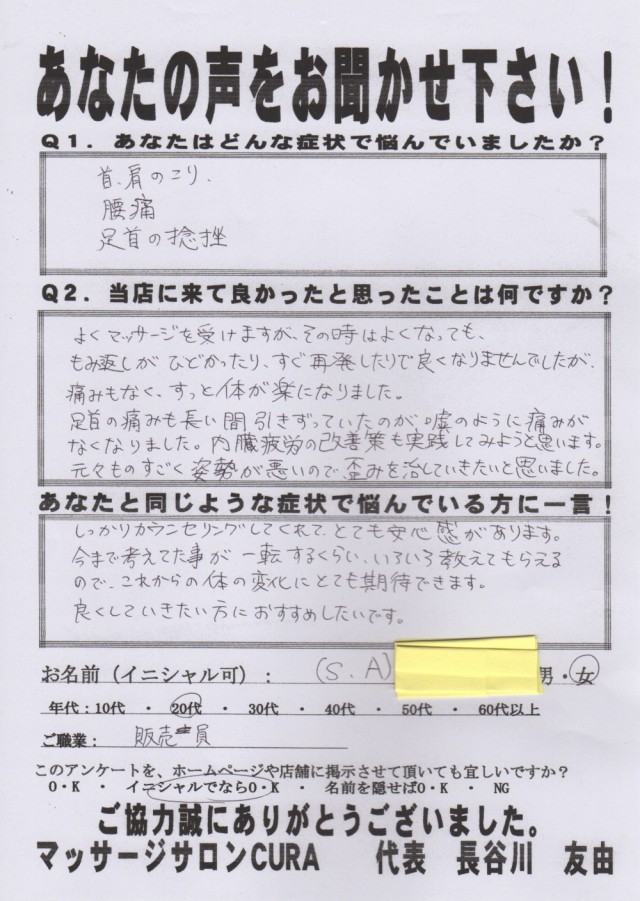 あなたの声をお聞かせ下さい！
Q1．あなたはどんな症状で悩んでいましたか？
首、肩のこり、
腰痛
足首の捻挫
Q2．当店に来て良かったと思ったことは何ですか？
よくマッサージを受けますが、その時はよくなっても、
もみ返しがひどかったり、すぐ再発したりで良くなりませんでしたが、
痛みもなく、すっと体が楽になりました。
足首の痛みも長い間引きずっていたのが、嘘のように痛みが
なくなりました。内臓疲労の改善策も実践してみようと思います。
元々ものすごく姿勢が悪いので歪みを治していきたいと思いました。
あなたと同じような症状で悩んでいる方に一言！
しっかりカウンセリングしてくれて、とても安心感があります。
今まで考えてた事が一転するくらい、いろいろ教えてもらえる
ので、これからの体の変化にとても期待できます。
良くしていきたい方におすすめしたいです。
お名前（イニシャル可）： (S.A) 男・女
年代：10代 ・ 20代 ・ 30代 ・ 40代 ・ 50代 ・ 60代以上
ご職業： 販売員
このアンケートを、ホームページや店舗に掲示させて頂いても宜しいですか？
O・K ・ イニシャルでならO・K ・ 名前を隠せばO・K ・ NG
ご協力誠にありがとうございました。
マッサージサロンCURA 代表 長谷川 友由